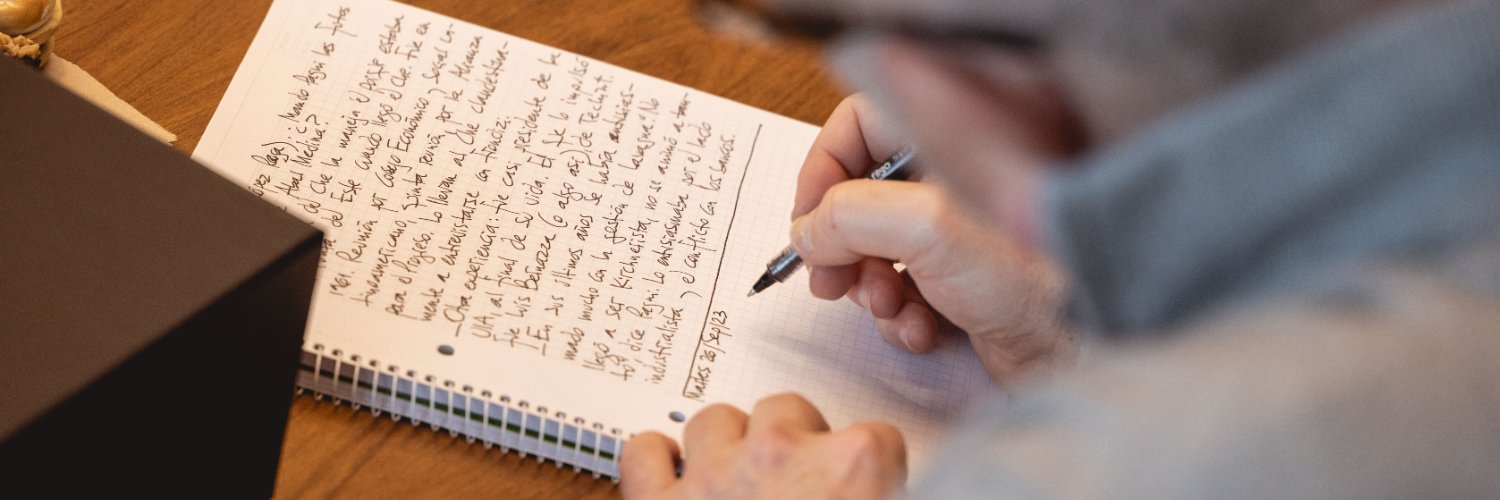 ¿Mandó Pagni las fotos
del Hotal Medina?
de Este cuando llegó el Che. Fue en
1961. Reunión por Consejo Económico y Social In-
teramericano. Quinta reunión por la Alianza
para el Progreso. Lo llevan al Che clandestina-
mente a entrevistarse con Frondizi.
– Otra experiencia: fue casi presidente de la
UIA, al final de su vida. Él se lo impulsó
fue Luis Betnaza (o algo así) de Techint.
– En sus últimos años se había entusias-
mado mucho con la gestión de Lavagna. No
llegó a ser Kirchnerista, no se animó a tan-
to, dice Pagni. Lo entusiasmaba por el lado
industrialista y el conflicto con los bancos.
Martes 26/Sep/23